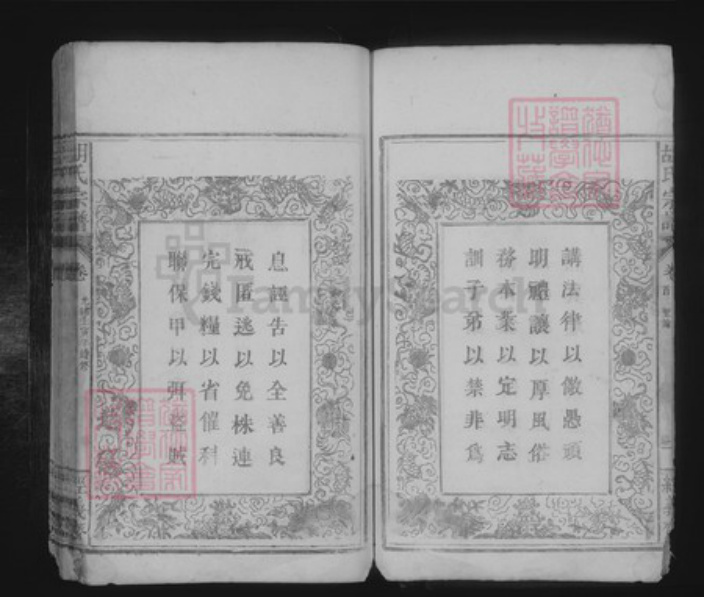 講法律以儆愚頑
明禮讓以厚風俗
務本業以定明志
訓子弟以禁非爲
息誣告以全善良
戒匿逃以免株連
完錢糧以省催科
聯保甲以弭盜賊
胡氏宗譜
卷首
胡氏宗譜
卷
FamilySearch